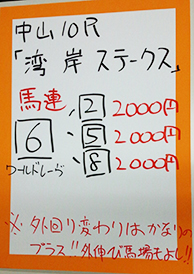 中山10R
「湾岸ステークス」
馬連 2 2000円
6 5 2000円
8 2000円
ワールドレーヴ
※外回り変わりは、かなりの
プラス!!外伸び馬場もよし!!